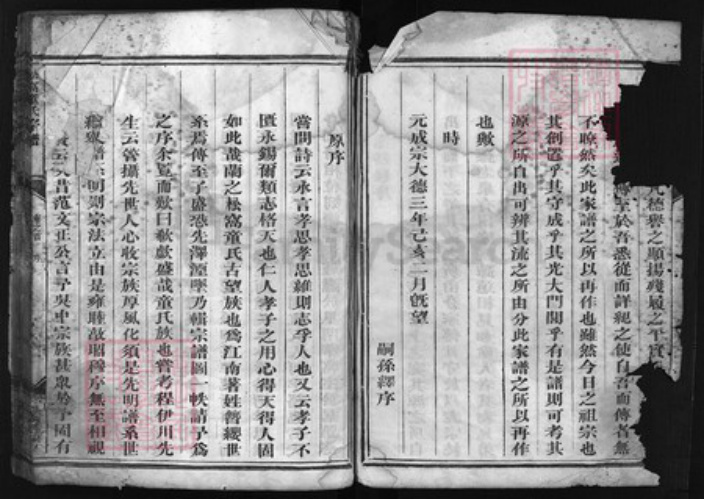 德譽之顯揚殘毀之平實
傳至於吾悉從而詳紀之使自吾而傳者無
不瞭然矣此家譜之所以再作也雖然今日之祖宗也
其創置乎其守成乎其光大門閭乎有是譜則可考其
源之所自出可辨其流之所由分此家譜之所以再作
也歟
時
元成宗大德三年己亥二月既望
嗣孫繹序
原序
嘗聞詩云永言孝思孝思維則志乎人也又云孝子不
匱永錫爾類志格天也仁人孝子之用心得天得人固
如此哉蘭之松窩童氏古望族也為江南著姓簪纓世
系焉傳至子盛恐先澤湮墜乃輯宗譜圖一帙請予為
之序余覽而歎曰猗歟盛哉童氏族也嘗考程伊川先
生云管攝先世人心收宗族厚風化須是先明譜系世
明則宗法立由是雍睦敵昭穆序無至相視
云昔范文正公言吾吳中宗族甚眾於予固有